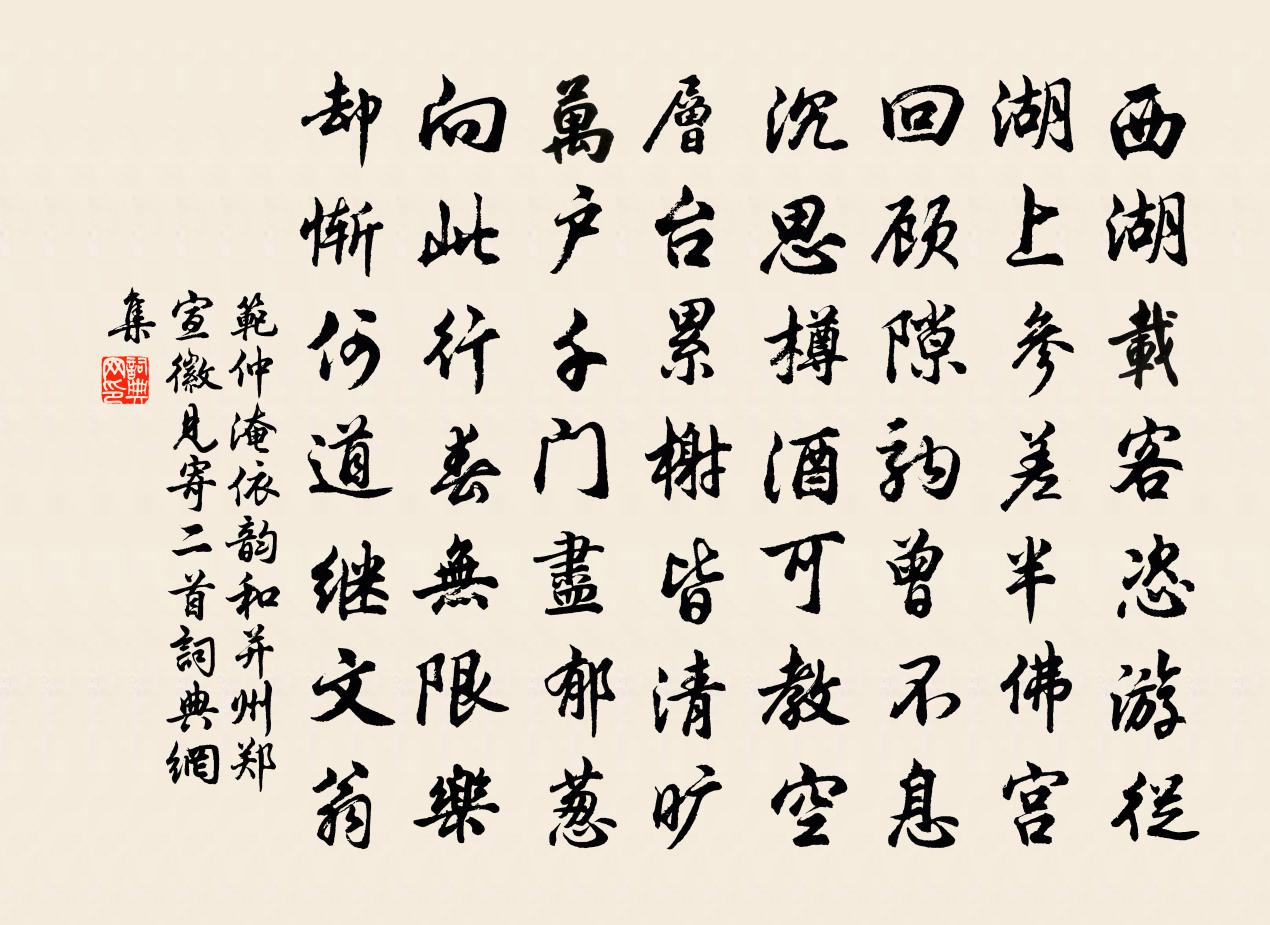 西湖載客恣游從
湖上參差半佛宮
回顾隙駒曾不息
沉思樽酒可教空
層台累榭皆清旷
萬户千门盡郁葱
向此行春無限樂
却惭何道继文翁
範仲淹依韵和并州郑
宣徽見寄二首詞典網
集
詞典网印